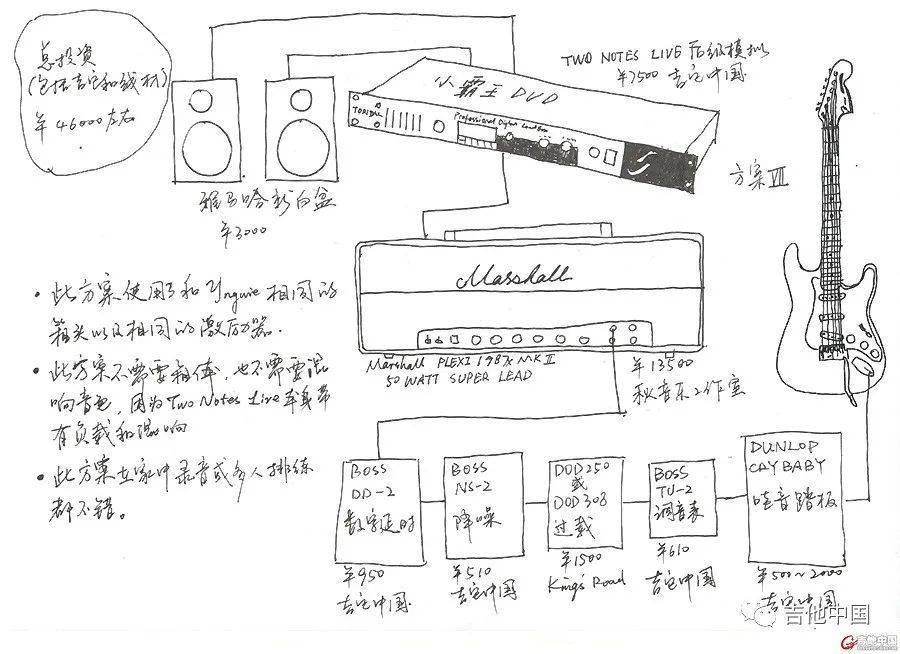 总投资
(包括吉它和线材)
¥46000左右
TWO NOTES LIVE 后级模拟
¥7500 吉它中国
小霸王 DVD
TORPEDO
Professional Digital Load Box
方案VII
雅马哈 白盆
¥3000
Masshall
Marshall PLEXI 1987X MK II
50 WATT SUPER LEAD
¥13500
秋音乐工作室
• 此方案使用了和Yngwie相同的
箱头以及相同的激励器.
• 此方案不需要箱体,也不需要混
响音色,因为Two Notes Live 本身带
有负载和混响
• 此方案在家中录音或多人排练
都不错。
BOSS
DD-2
数字延时
¥950
吉它中国
BOSS
NS-2
降噪
¥510
吉它中国
DOD250
或
DOD308
过载
¥1500
King's Road
BOSS
TU-2
调音表
¥610
吉它中国
DUNLOP
CAYBABY
哇音踏板
¥500~2000
吉它中国
吉他中国
吉他中国